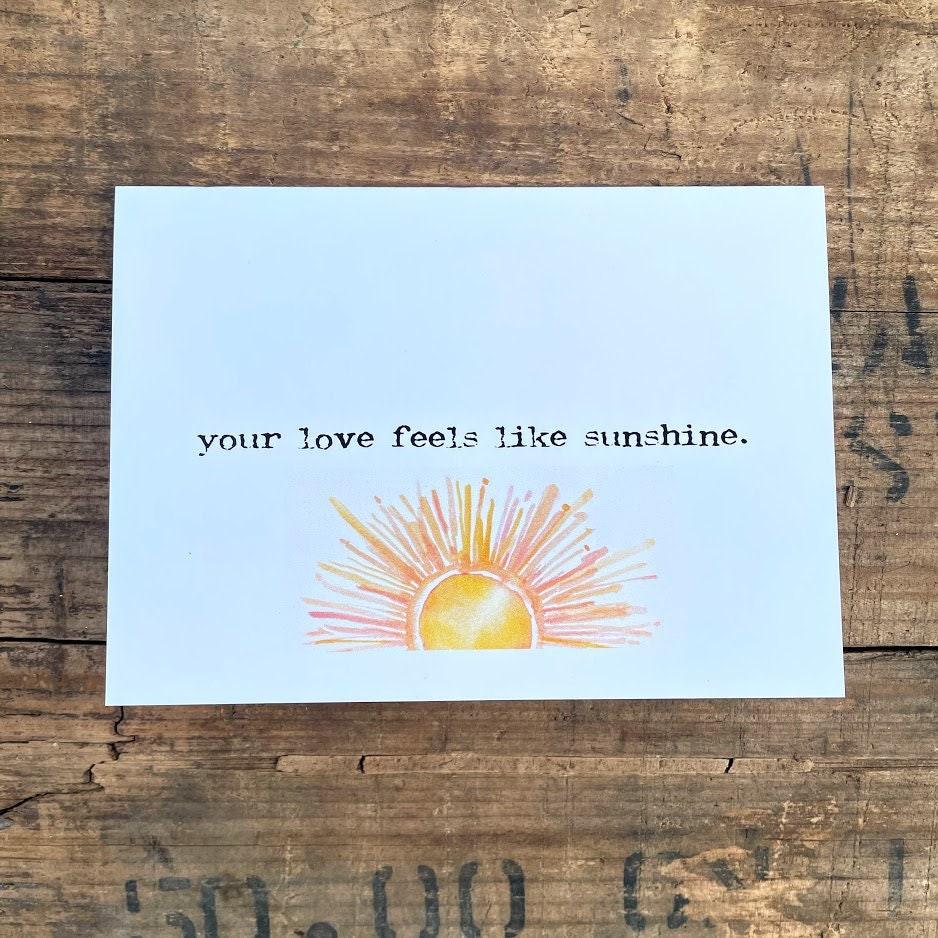 your love feels like sunshine.